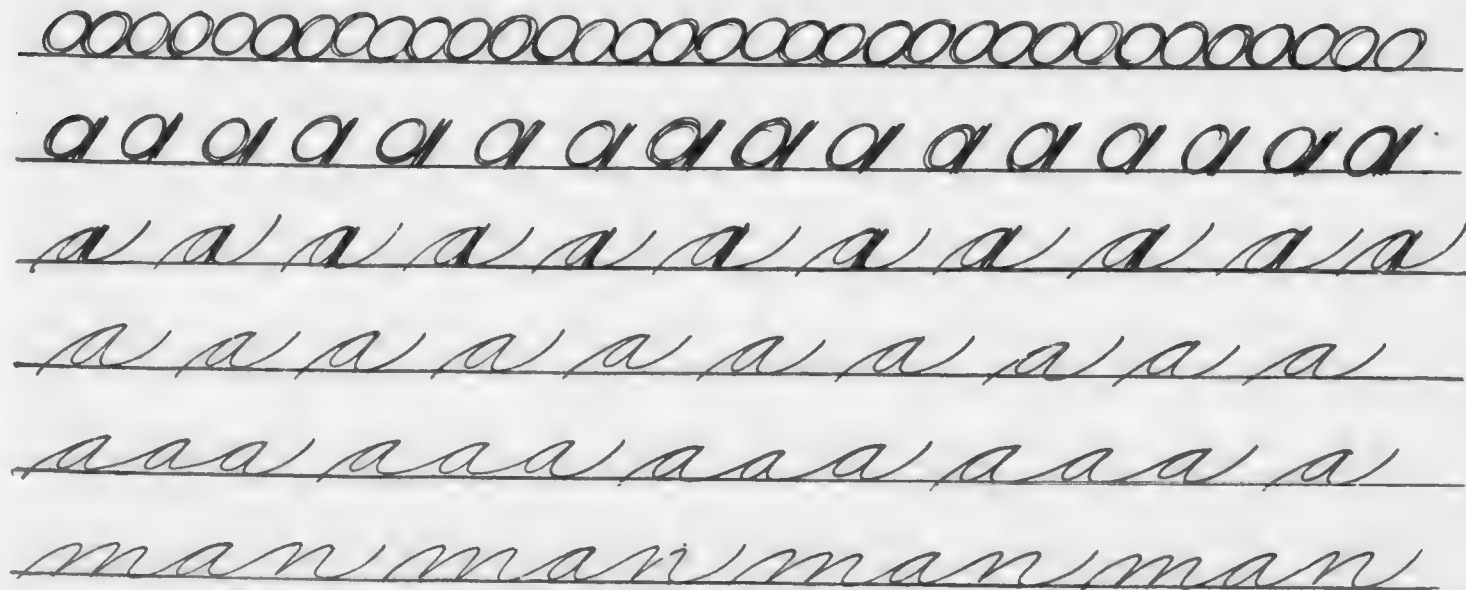 a a a a a a a a a a a a a a a a
a a a a a a a a a a a
a a a a a a a a a a
aaa aaa aaa aaa a
man man man man